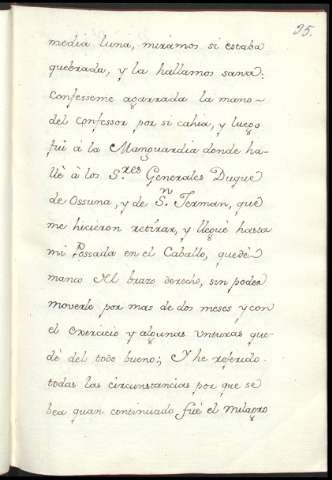 95.
media luna, mirámos si estaba
quebrada, y la hallamos sana.
Confesseme agarrada la mano-
del Confessor por si cahia, y luego
fuí â la Manguardia donde ha-
llê à los S.res Generales Duque
de Ossuna, y de S.n Jerman, que
me hicieron retirar, y lleguè hasta
mi Possada en el Caballo, quedè
manco del brazo derecho, sin poder
moverle por mas de dos meses y con
el exercicio y algunas unturas que-
dé del todo bueno; Y he referido
todas las circunstancias por que se
bea quan continuado fué el milagro